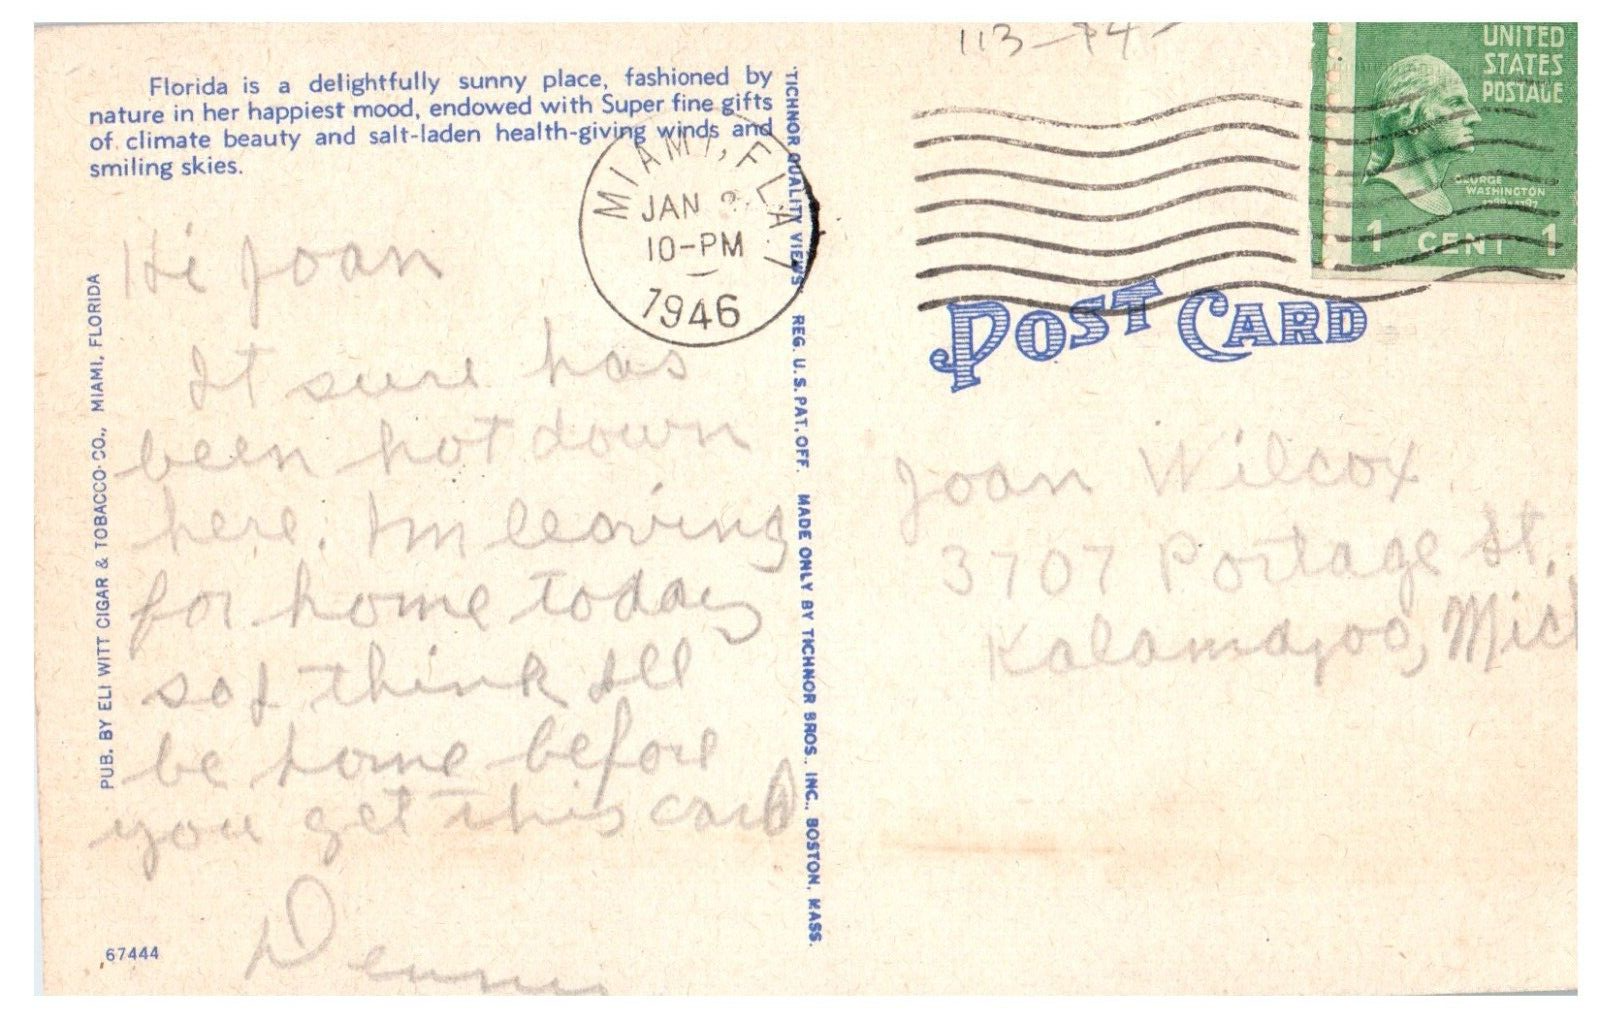 113-
Florida is a delightfully sunny place, fashioned by
nature in her happiest mood, endowed with Super fine gifts
of climate beauty and salt-laden health-giving winds and
smiling skies.
Hi Joan
It sure has
been hot down
here. Im leaving
for home today
so I think Ill
be home before
you get this card
PUB. BY ELI WITT CIGAR & TOBACCO CO., MIAMI, FLORIDA
67444
TICHNOR QUALITY VIEWS REG. U.S. PAT. OFF. MADE ONLY BY TICHNOR BROS., INC., BOSTON, MASS.
MIAMI, FLA.
JAN
10-PM
1946
UNITED
STATES
POSTAGE
GEORGE
WASHINGTON
1 CENT 1
POST CARD
Joan Wilcox
3707 Portage St.
Kalamazoo, Mich